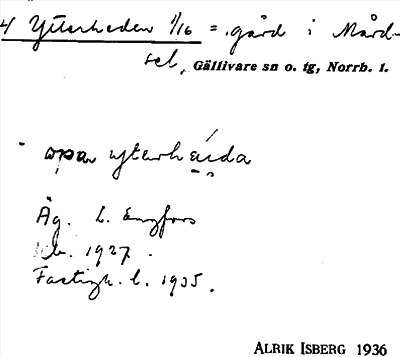 4 Ytterheden 1/16 = gård i Mård-
sel, Gällivare sn o. tg, Norrb. l.
opa ytterhäida
Äg. L. Engfors
1927.
Fastigh. l. 1935.
ALRIK ISBERG 1936